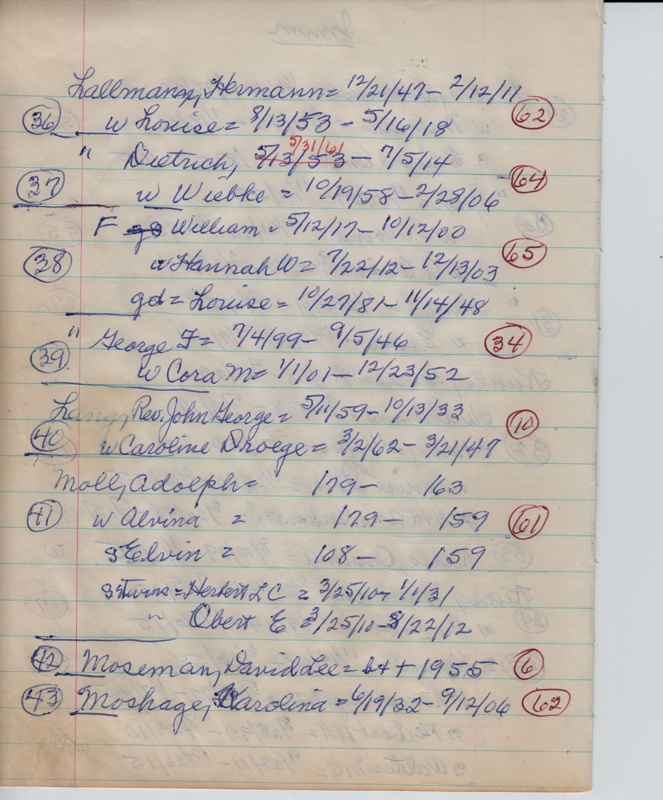 Lallmann, Hermann = 12/21/47 - 2/12/11
36 w Louise = 8/13/53 - 5/16/18 62
" Dietrich, 5/13/53 5/31/61 - 7/5/14
37 w Wiebke = 10/19/58 - 2/28/06 64
F gs William = 5/12/17 - 10/12/00
38 w Hannah W = 7/22/12 - 12/13/03 65
gd = Louise = 10/27/81 - 11/14/48
" George F = 7/4/99 - 9/5/46 34
39 w Cora M = 1/1/01 - 12/23/52
Lang, Rev. John George = 5/11/59 - 10/13/33 10
40 w Caroline Droege = 3/2/62 - 3/21/47
Moll, Adolph = 179 - 163
41 w Alvina = 179 - 159 61
s Elvin = 108 - 159
s twins = Herbert L C = 3/25/10 - 1/1/31
" Obert E = 3/25/10 - 8/22/12
42 Moseman, David Lee = b+ + 1955 6
43 Moshage, Karolina = 6/19/32 - 9/12/06 62